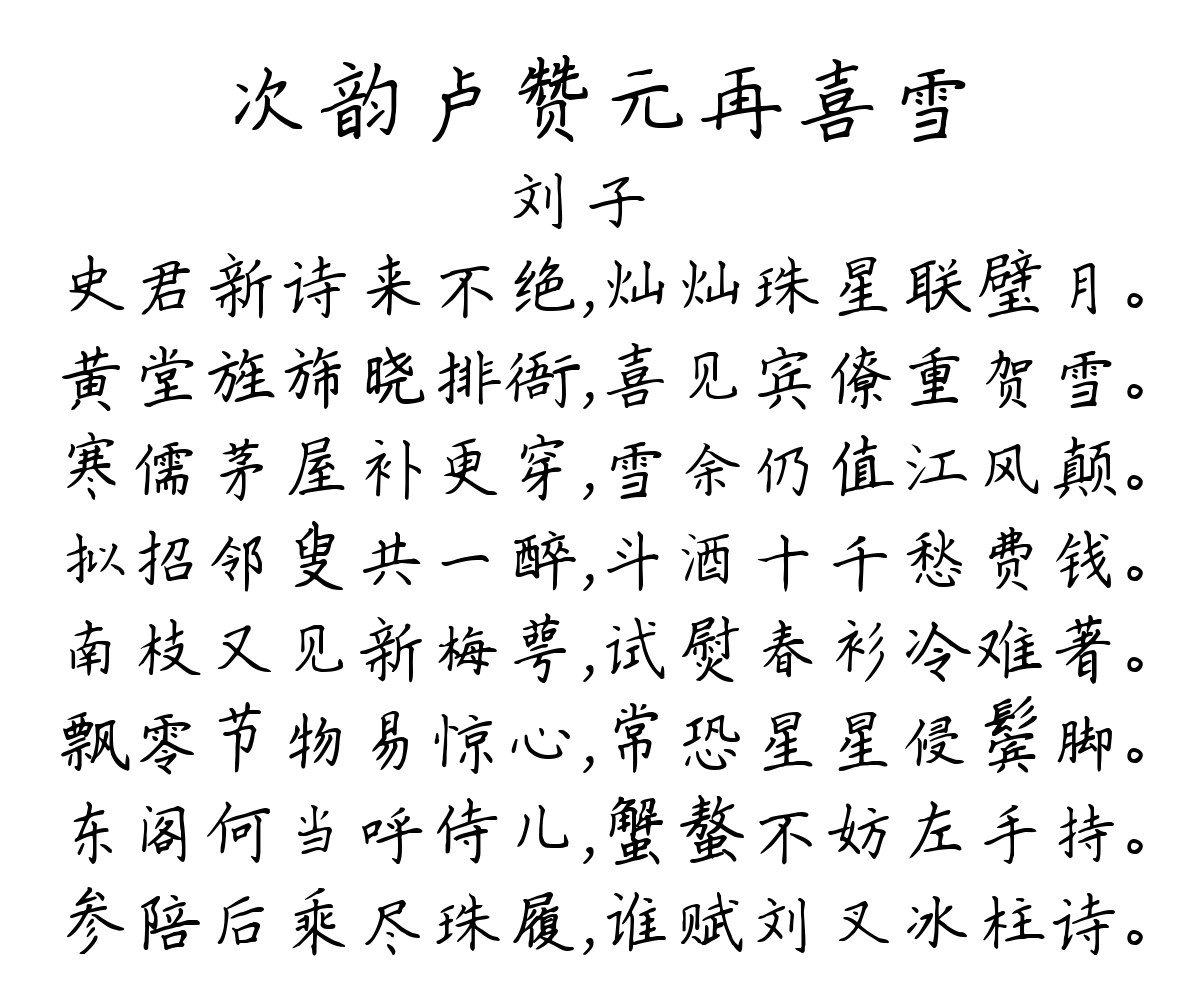 次韵卢赞元再喜雪
刘子
史君新诗来不绝,灿灿珠星联璧月。
黄堂旌斾晓排衙,喜见宾僚重贺雪。
寒儒茅屋补更穿,雪余仍值江风颠。
拟招邻叟共一醉,斗酒十千愁费钱。
南枝又见新梅萼,试熨春衫冷难著。
飘零节物易惊心,常恐星星侵鬓脚。
东阁何当呼侍儿,蟹螯不妨左手持。
参陪后乘尽珠履,谁赋刘叉冰柱诗。